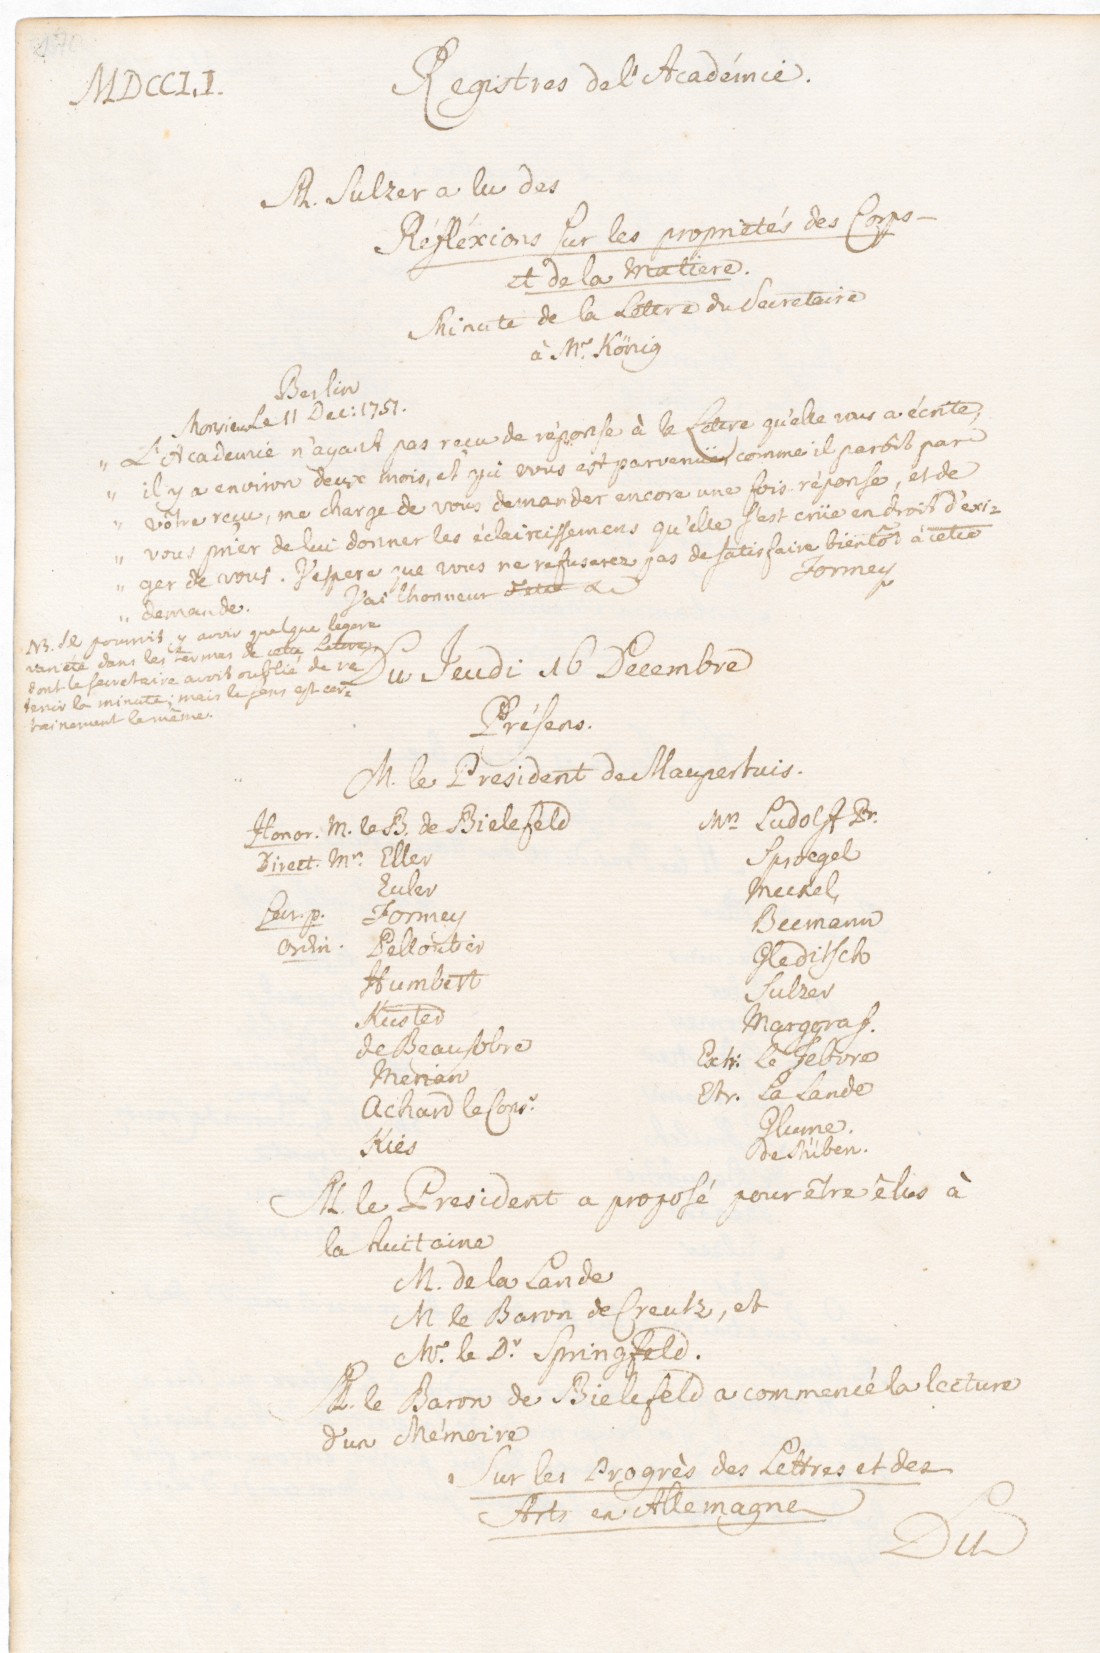 MDCCLI.
Registres de l'Académie.
M. Sulzer a lu des
Réfléxions sur les proprietés des Corps
et de la Matiere.
Minute de la Lettre du Secretaire
à Mr. König
Berlin
Monsieur Le 11 Dec: 1751.
" L'Academie n'ayant pas reçu de réponse à la Lettre qu'elle vous a écrite,
" il y a environ deux mois, et qui vous est parvenüe, comme il paroît par
" vôtre reçu, me charge de vous demander encore une fois réponse, et de
" vous prier de lui donner les éclaircissemens qu'elle s'est crüe en droit d'exi=
" ger de vous. J'espere que vous ne refuserez pas de satisfaire bientôt à cette
" demande. J'ai l'honneur &
Formey
NB. Il pourroit y avoir quelque legere
varieté dans les termes de cette Lettre,
dont le secretaire avoit oublié de re
tenir la minute; mais le sens est cer=
tainement le même.
Du Jeudi 16 Decembre
Présens.
M. le President de Maupertuis.
Honor. M. le B. de Bielefeld
Direct. Mrs. Eller
Euler
Secr. p. Formey
Ordin. Pelloutier
Humbert
Küster
de Beausobre
Merian
Achard le Consr.
Kies
Mrs Ludolff Pr.
Sproegel
Meckel,
Becmann
Gleditsch
Sulzer
Marggraf.
Extr. Le Febvre
Etr. La Lande
Glume.
de Rüben.
M. le President a proposé pour être élus à
la huitaine
M. de la Lande
M le Baron de Creutz, et
Mr. le Dr. Springfeld.
M. le Baron de Bielefeld a commencé la lecture
d'un Mémoire
Sur les Progrès des Lettres et des
Arts en Allemagne
Du